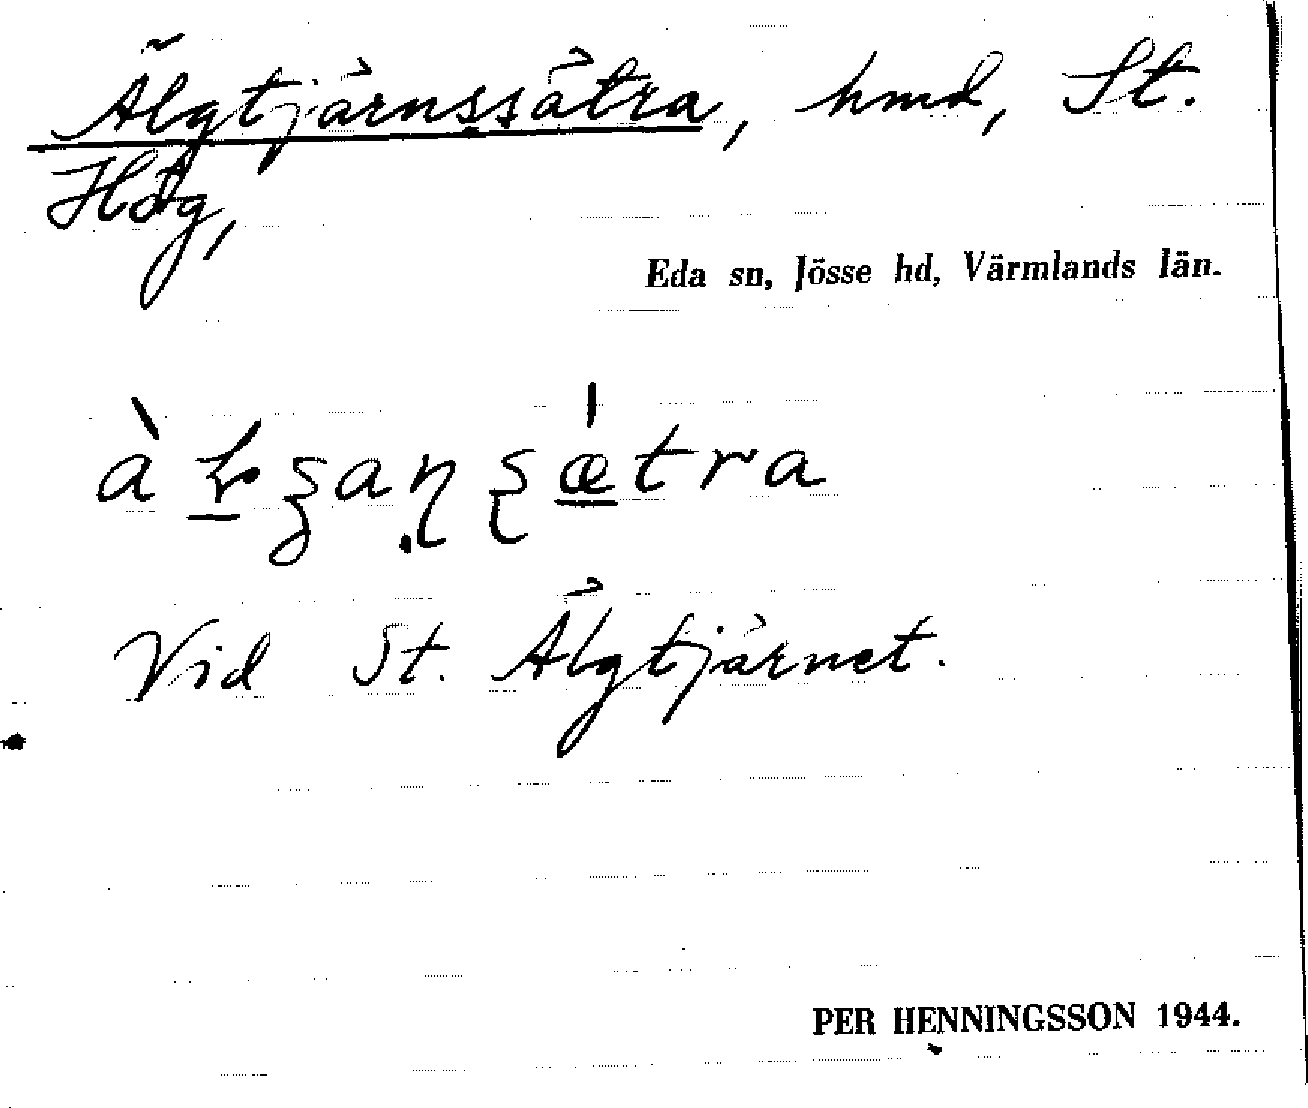 Älgtjärnssätra, hmd, St.
Hög,
Eda sn, Jösse hd, Värmlands län.
Vid St. Älgtjärnet.
PER HENNINGSSON 1944.